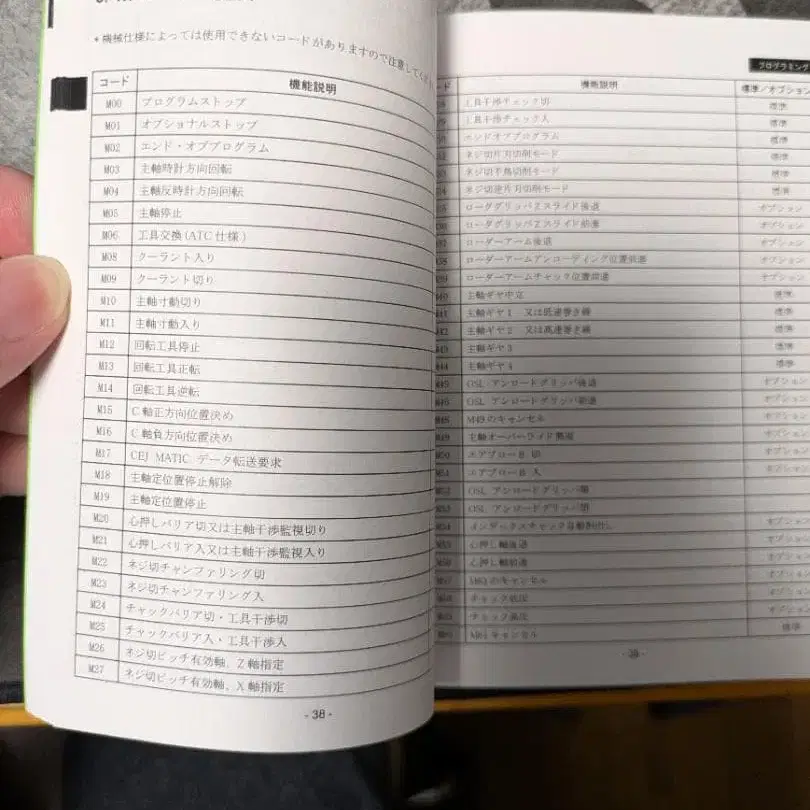 *機械仕様によっては使用できないコードがありますので注意してくだ
コード 機能説明
M00 プログラムストップ
M01 オプショナルストップ
M02 エンド・オブプログラム
M03 主軸時計方向回転
M04 主軸反時計方向回転
M05 主軸停止
M06 工具交換(ATC仕様)
M08 クーラント入り
M09 クーラント切り
M10 主軸寸動切り
M11 主軸寸動入り
M12 回転工具停止
M13 回転工具正転
M14 回転工具逆転
M15 C軸正方向位置決め
M16 C軸負方向位置決め
M17 CEJ MATIC データ転送要求
M18 主軸定位置停止解除
M19 主軸定位置停止
M20 心押しバリア切又は主軸干渉監視切り
M21 心押しバリア入又は主軸干渉監視入り
M22 ネジ切チャンファリング切
M23 ネジ切チャンファリング入
M24 チャックバリア切・工具干渉切
M25 チャックバリア入・工具干渉入
M26 ネジ切ピッチ有効軸、Z軸指定
M27 ネジ切ピッチ有効軸、X軸指定
-38-
プログラミング
ード 機能説明 標準/オプション
工具干渉チェック切 標準
工具干渉チェック入 標準
エンドオブプログラム 標準
ネジ切片刃切削モード 標準
ネジ切千鳥切削モード 標準
ネジ切逆片刃切削モード 標準
ローダグリッパZスライド後退 オプション
ローダグリッパZスライド前進 オプション
ローダーアーム後退 オプション
ローダーアームアンローディング位置前進 オプション
ローダーアームチャック位置前進 オプション
M40 主軸ギヤ中立 標準
M41 主軸ギヤ1 又は低速巻き線 標準
M42 主軸ギヤ2 又は高速巻き線 標準
M43 主軸ギヤ3 標準
M44 主軸ギヤ4 標準
M45 OSL アンロードグリッパ後退 オプション
M46 OSL アンロードグリッパ前進 オプション
M48 M49のキャンセル オプション
M49 主軸オーバーライド無視 オプション
M50 エアブローB 切 オプション
M51 エアブローB 入 オプション
M52 OSL アンロードグリッパ開
M53 OSL アンロードグリッパ閉
M54 オプション
M55 心押し軸後退 オプション
M56 心押し軸前進 オプション
M57 M63のキャンセル オプション
チャック低圧 オプション
チャック高圧 オプション
M61キャンセル 標準
-39-